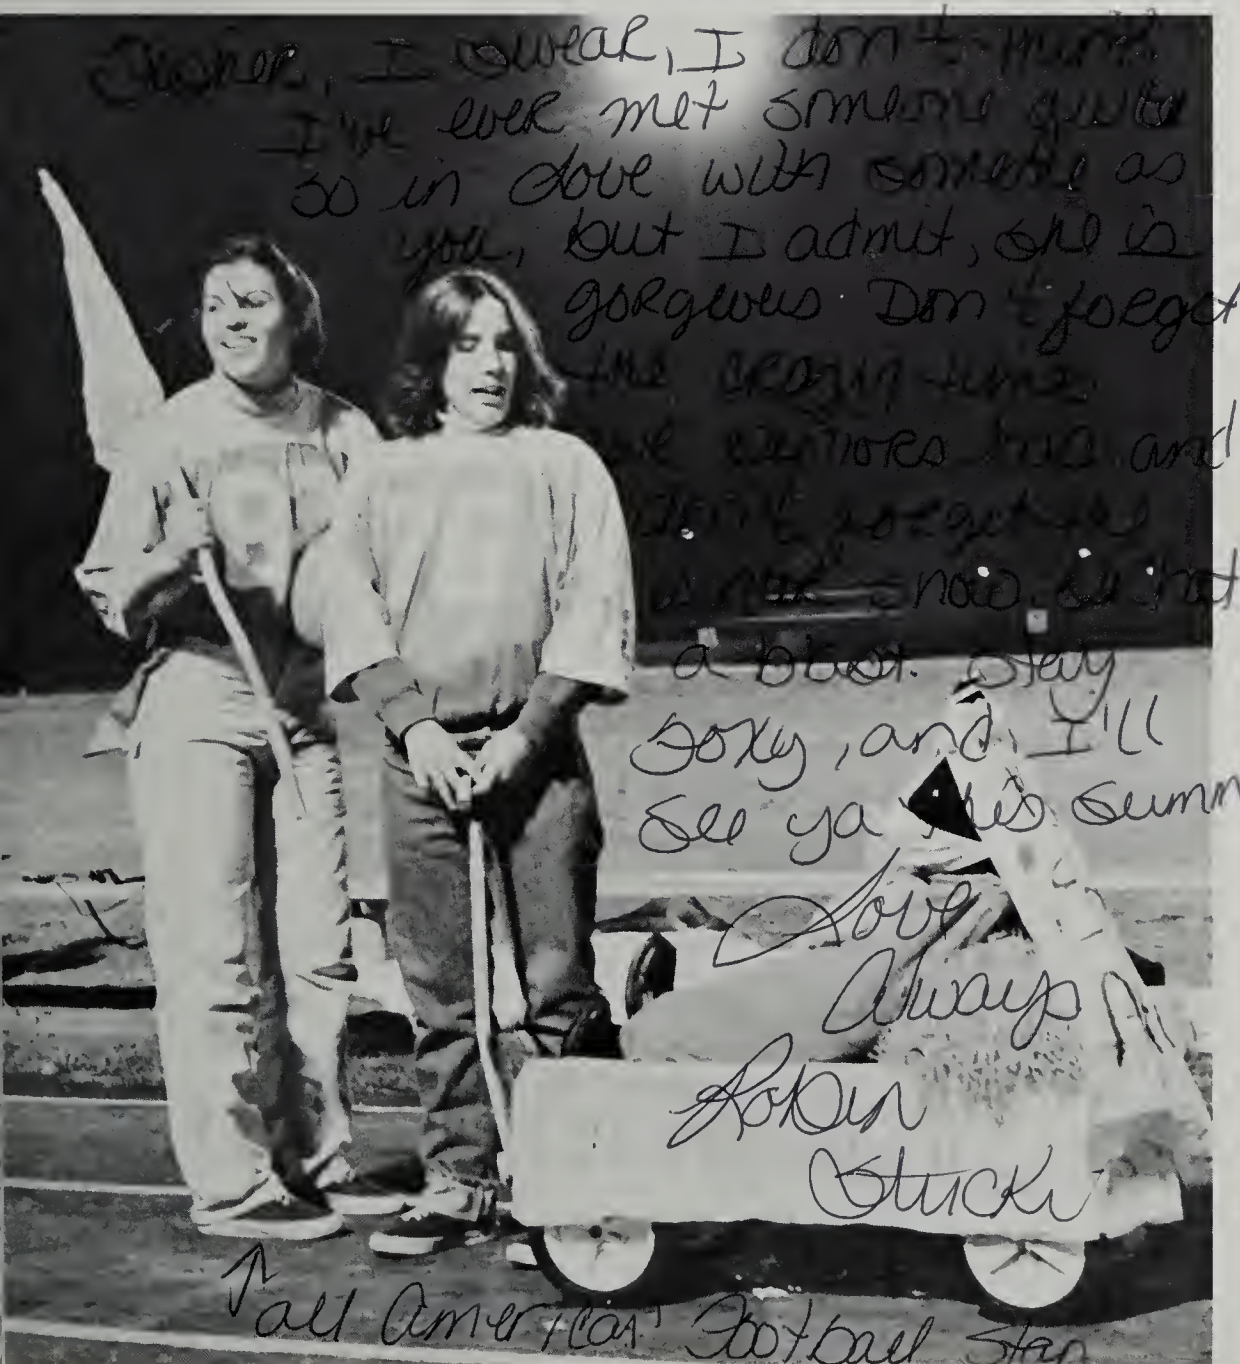 I swear, I don't think
I've ever met someone quite
so in love with someone as
you, but I admit, she is
gorgeous Don't forget
the crazy times
and
Don't forget the
snow, what
a blast. Stay
soxy, and, I'll
see ya this summ
Love
Always
Robin
Stucki
all American Football Star